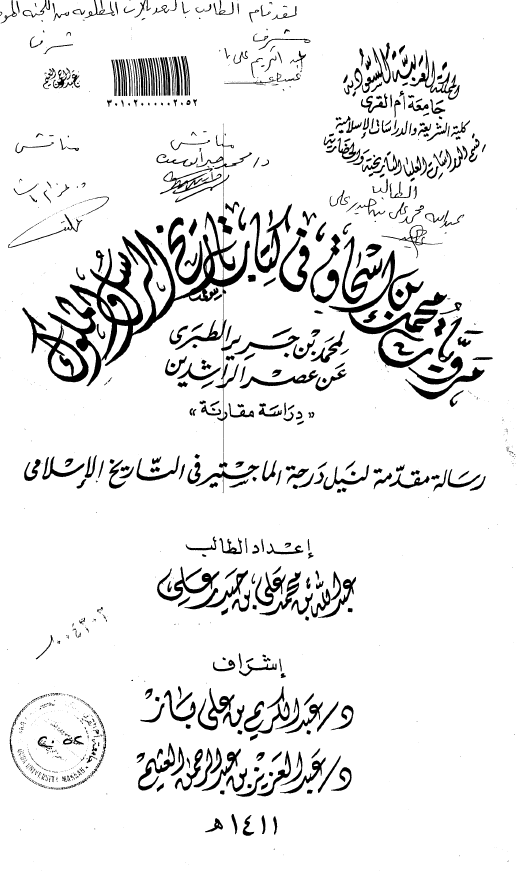 لقد قام الطالب بالتعديلات المطلوبة من اللجنة
مشرف
مشرف
عبد الكريم علي باز
٣٠١٠٢٠٠٠٠٠٢٠٥٢
المملكة العربية السعودية
جامعة أم القرى
كلية الشريعة والدراسات الإسلامية
قسم الدراسات العليا التاريخية والحضارية
الطالب
عبدالله محمد علي بن حيدر علي
مناقش
مناقش
مرويات محمد بن اسحاق في كتاب تاريخ الرسل والملوك
لمحمد بن جرير الطبري
عن عصر الراشدين
«دراسة مقارنة»
رسالة مقدمة لنيل درجة الماجستير في التاريخ الإسلامى
إعداد الطالب
عبدالله بن محمد على بن حيدر على
إشراف
د/ عبدالكريم بن على باز
د/ عبدالعزيز بن عبدالرحمن العثيم
١٤١١ هـ